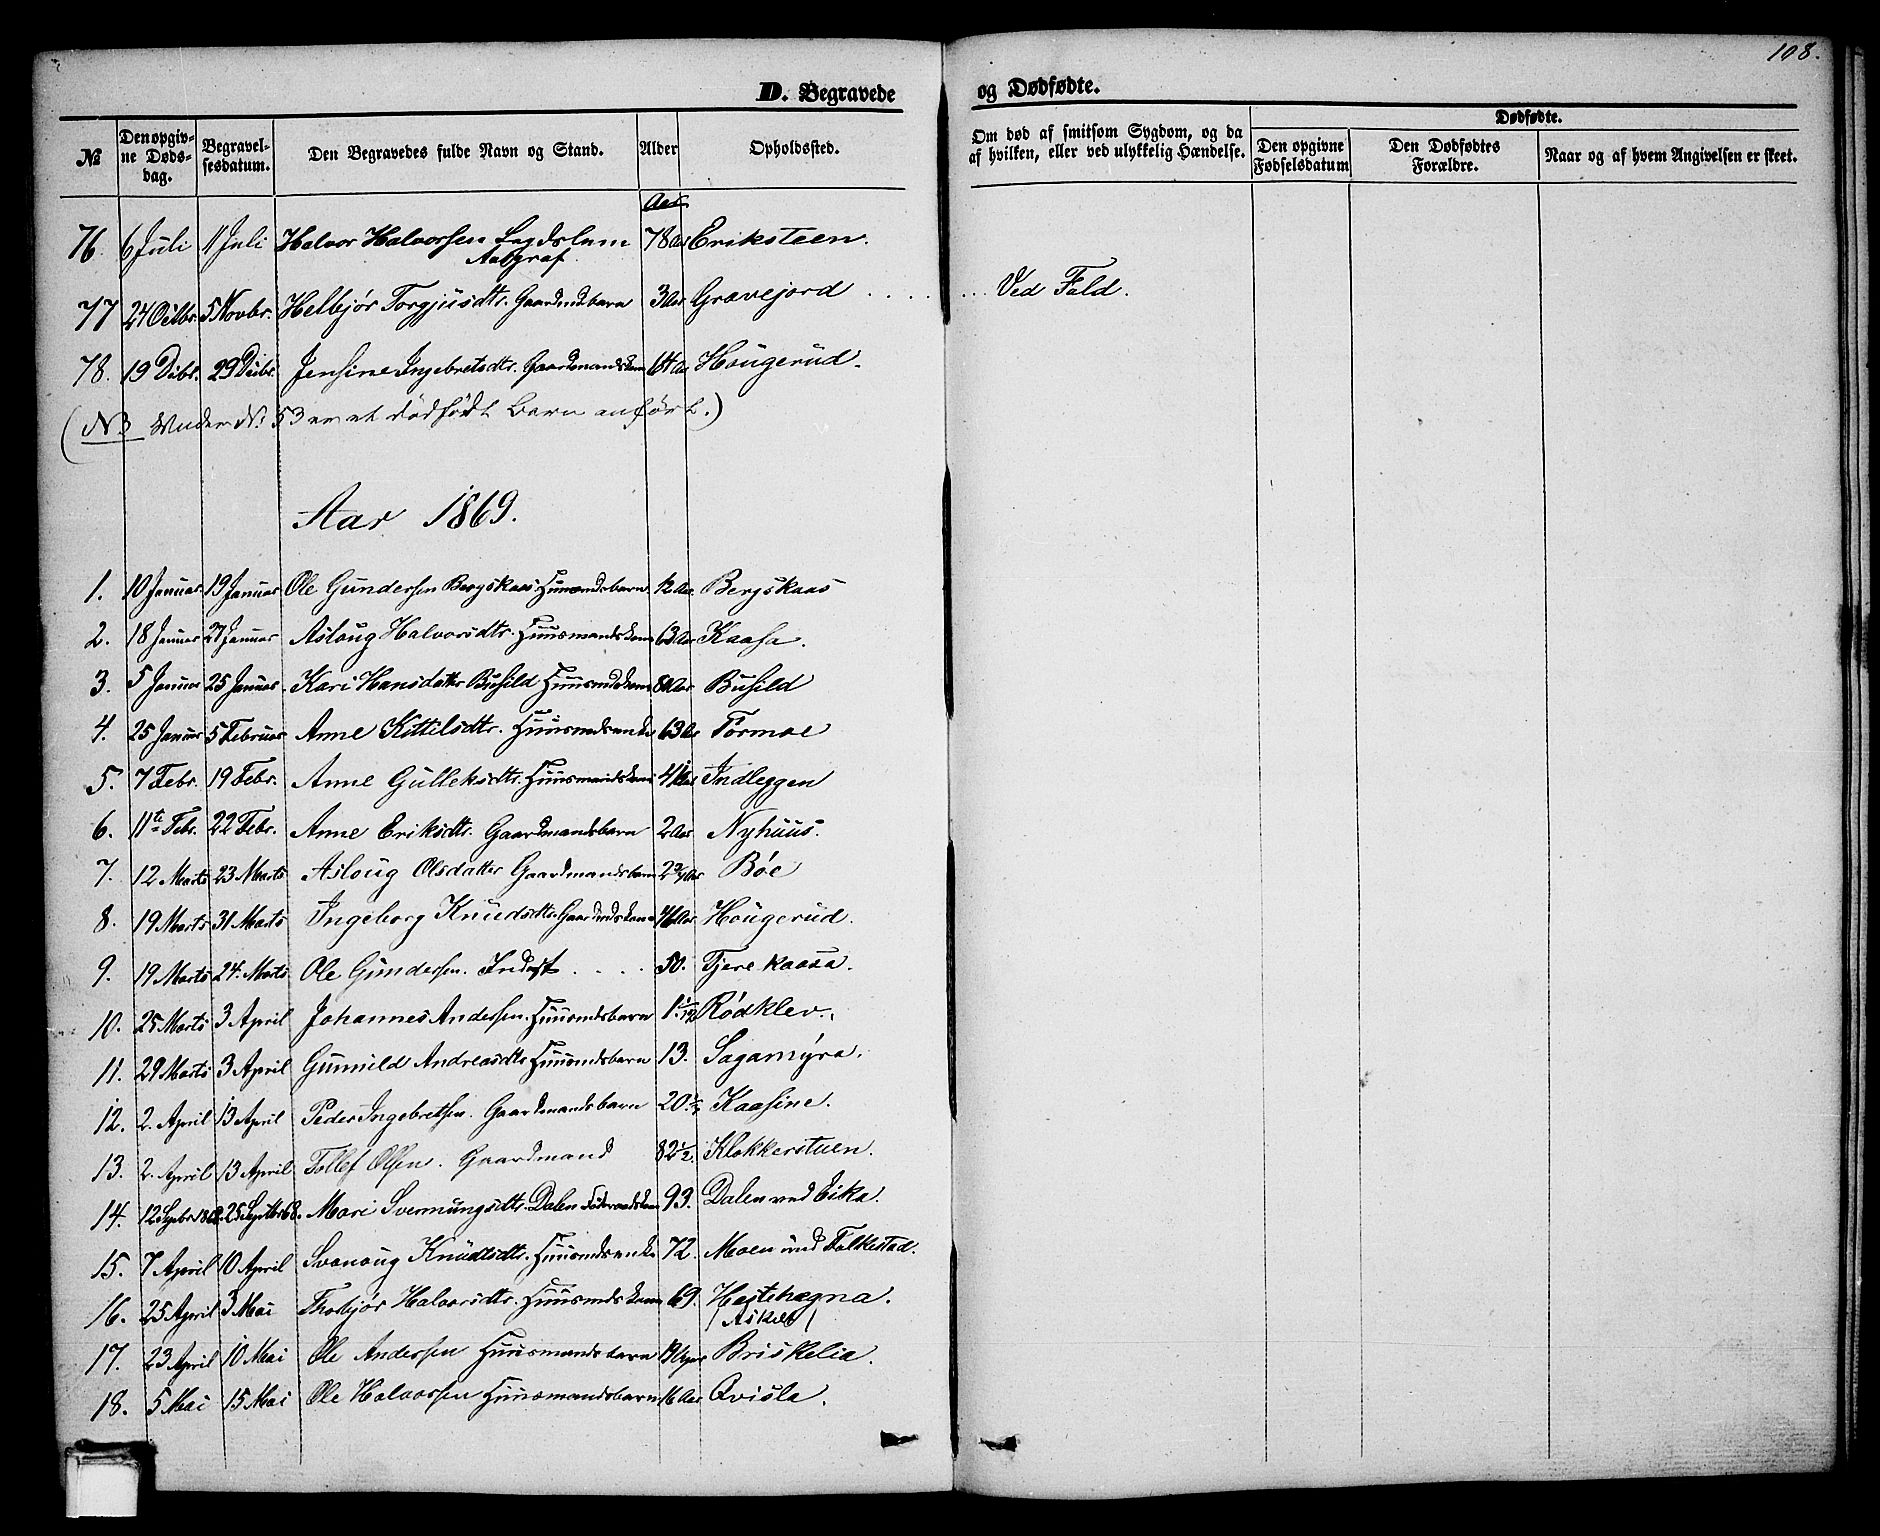 108.
D. Begravede og Dødfødte.
№ | Den opgivne Dødsdag. | Begravelsesdatum. | Den Begravedes fulde Navn og Stand. | Alder | Opholdssted. | Om død af smitsom Sygdom, og da af hvilken, eller ved ulykkelig Hændelse. | Dødfødte. | Den opgivne Fødselsdatum | Den Dødfødtes Forældre. | Naar og af hvem Angivelsen er skeet.
Aar
76. 6 Juli 11 Juli Halvor Halvorsen Legdslem 78 Aar Eriksteen.
77 24 Octbr. 5 Novbr. Helbjør Torgjusdtr. Gaardmdbarn 3 Aar Gravejord . . . . . . . Ved Fald.
78. 19 Decbr. 29 Decbr. Jensine Ingebretsdtr. Gaardmandskone 64 Aar Hougerud.
(NB Under N: 53 er et dødfødt Barn anført.)
Aar 1869.
1. 10 Januar 19 Januar Ole Gundersen Bergskaas Huusmdsbarn 12 Aar. Bergskaas
2. 18 Januar 27 Januar Asloug Halvorsdtr. Huusmandskone 63 Aar Kaasa.
3. 5 Januar 25 Januar. Kari Hansdatter Busild Huusmdskone Aar Busild
4. 25 Januar 5 Februar Anne Kittilsdtr. Huusmdsenke 63 Aar Formoe
5. 7 Febr. 19 Febr. Anne Gulleksdtr. Huusmandskone 41 Aar Indleggen
6. 11te Febr. 22 Febr. Anne Eriksdtr. Gaardmandsbarn 2 Aar Nyhuus.
7. 12 Marts 23 Marts Asloug Olsdatter Gaardmandsbarn 2 Aar Bøe
8. 19 Marts 31 Marts Ingeborg Knudsdtr. Gaardmdskone 46 Aar Hougerud.
9. 19 Marts 24. Marts Ole Gundersen. Inderst . . . . 50. Tjerekaasa.
10. 25 Marts 3 April Johannes Andersen. Huusmdsbarn 1 1/12 Rødklev.
11. 29 Marts 3 April Gunnild Andreasdtr. Huusmdsbarn 13. Sagamyra.
12. 2. April 13 April Peder Ingebretsen. Gaardmandsbarn 20 Kaasine.
13. 2. April 13 April Tollef Olsen. Gaardmand 82 1/2. Klokkerstuen.
14. 12 Septbr 1868. 25 Septbr 68. Mari Svermungsdtr. Dalen Føderaadskone 93. Dalen ved Eika.
15. 7 April 10 April Svanoug Knudsdtr. Huusmdsenke 72. Moen und Folkestad.
16. 25 April 3 Mai Thorbjør Halvorsdtr. Huusmdskone 69. Hestehægna.
17. 23 April 10 Mai Ole Andersen Huusmandsbarn 19 Briskelia.
18. 5 Mai 15 Mai Ole Halvorsen Huusmandsbarn 16 Aar Qvisla.